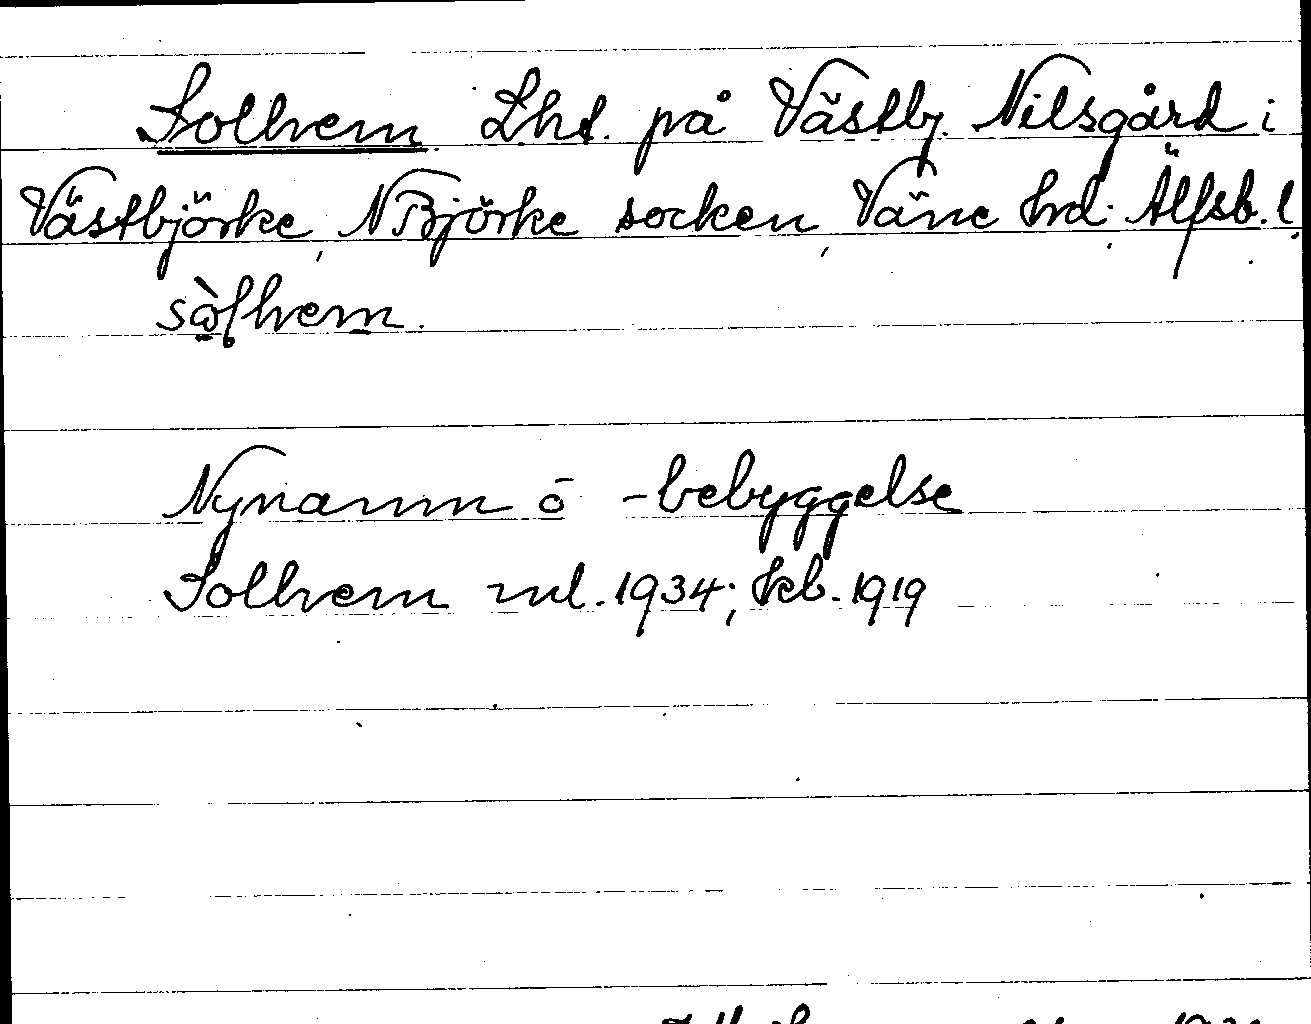 Solhem Lht. på Västbj. Nilsgård i
Västbjörke, N Björke socken, Väne hd. Älfsb. l.
sòlhem.
Nynamn o -bebyggelse
Solhem ml. 1934; kb. 1919